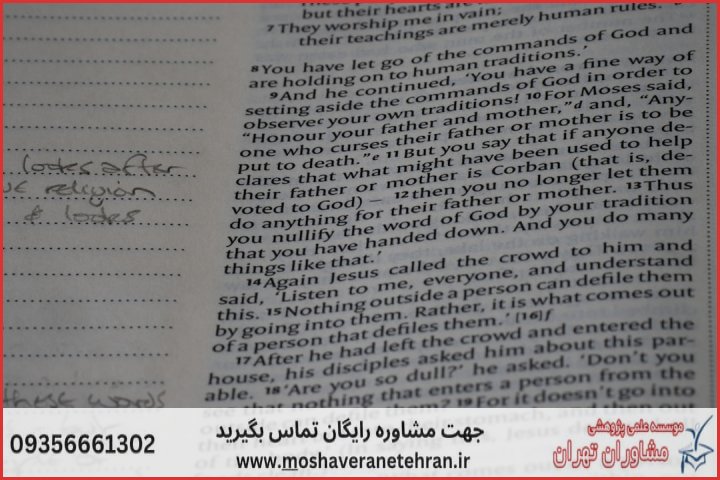 but their hearts are
7 They worship me in vain;
their teachings are merely human rules.'
8 You have let go of the commands of God and
are holding on to human traditions.'
9 And he continued, 'You have a fine way of
setting aside the commands of God in order to
observer your own traditions! 10 For Moses said,
"Honour your father and mother,"d and, "Any-
one who curses their father or mother is to be
put to death."e 11 But you say that if anyone de-
clares that what might have been used to help
their father or mother is Corban (that is, de-
voted to God) – 12 then you no longer let them
do anything for their father or mother. 13 Thus
you nullify the word of God by your tradition
that you have handed down. And you do many
things like that.'
14 Again Jesus called the crowd to him and
said, 'Listen to me, everyone, and understand
this. 15 Nothing outside a person can defile them
by going into them. Rather, it is what comes out
of a person that defiles them.' [16]f
17 After he had left the crowd and entered the
house, his disciples asked him about this par-
able. 18 'Are you so dull?' he asked. 'Don't you
see that nothing that enters a person from the
can defile them? 19 For it doesn't go into
stomach, and then out
religion
these words
09356661302
جهت مشاوره رایگان تماس بگیرید
www.moshaveranetehran.ir
موسسه علمی پژوهشی
مشاوران تهران